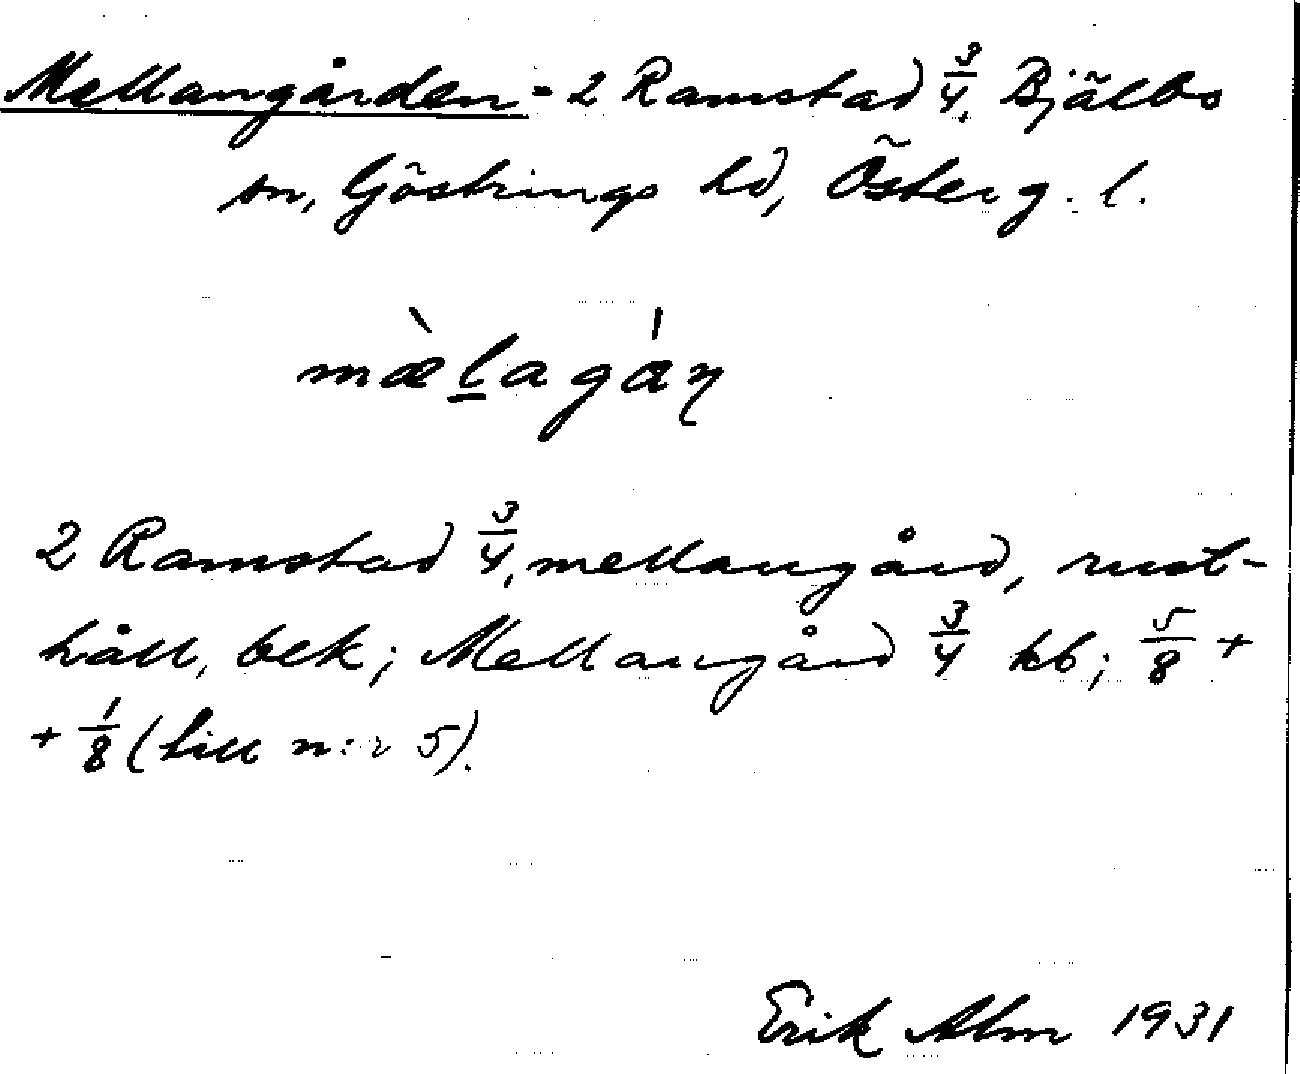 Mellangården - 2 Ramstad 3/4, Bjälbo
sn, Göstrings hd, Österg. l.
mæ̀l̲agáɳ
2 Ramstad 3/4, mellangård, rust-
håll, bek; Mellangård 3/4 kb; 5/8 +
+ 1/8 (till n:r 5).
Erik Alm 1931